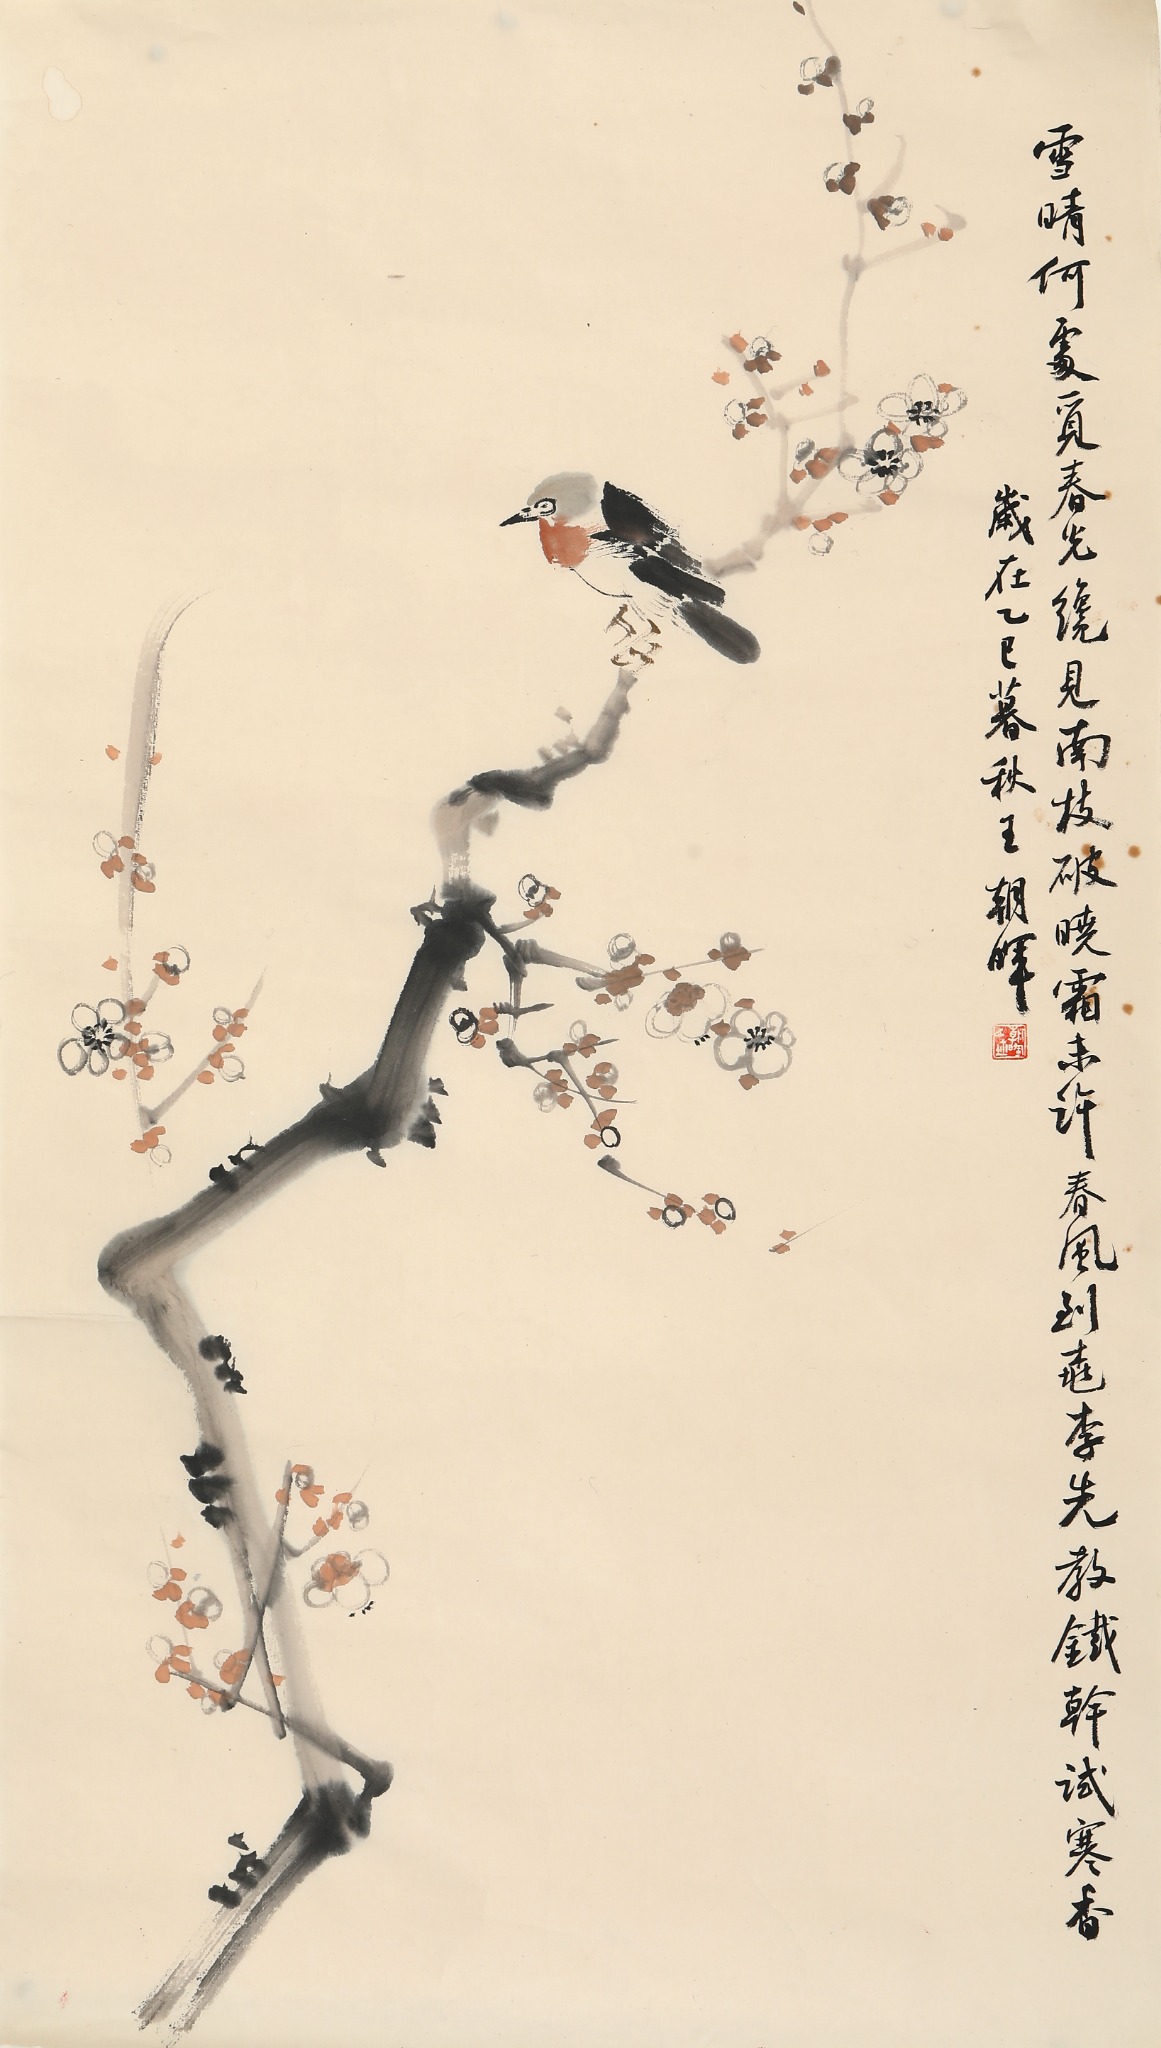 雪晴何處覓春光纔見南枝破曉霜未許春風到桃李先教鐵幹試寒香
歲在乙巳暮秋王朝暉